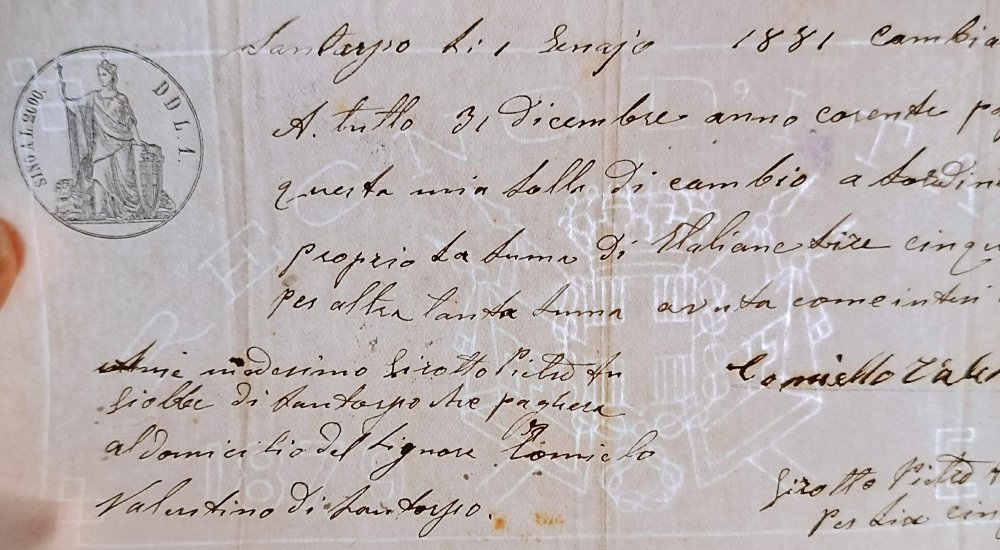 SINO A L. 2000.
DD L. 1.
Santorso li 1 Genajo 1881 Cambia
A. tutto 31 Dicembre anno corente pa
questa mia solla di cambio a sordin
proprio la suma di Italiane Lire cinqu
per altra tanta suma avuta come interi
A me medesimo Girotto Pietro fu
Giobbe di Santorso che paghera
al domicilio del Signore Comielo
Valentino di Santorso.
Comiello Vale
Girotto Pietro
per Lire cin